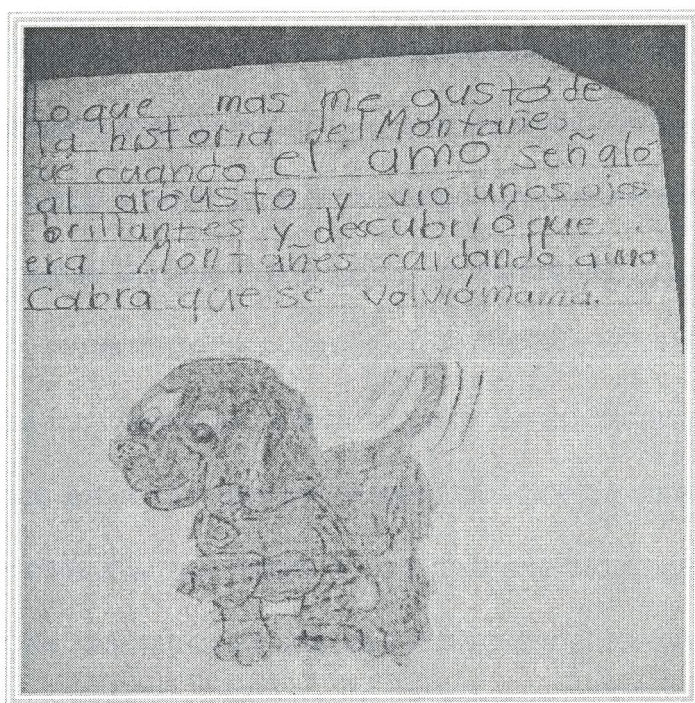 Lo que mas me gustó de
la historia del Montañes
fué cuando el amo señaló
al arbusto y vió unos ojos
brillantes y descubrió que
era Montañes cuidando a una
Cabra que se volvió mamá.